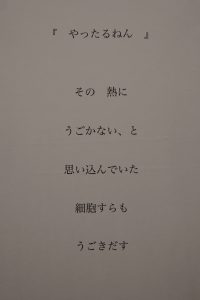 『　やったるねん　』
その　熱に
うごかない、と
思い込んでいた
細胞すらも
うごきだす